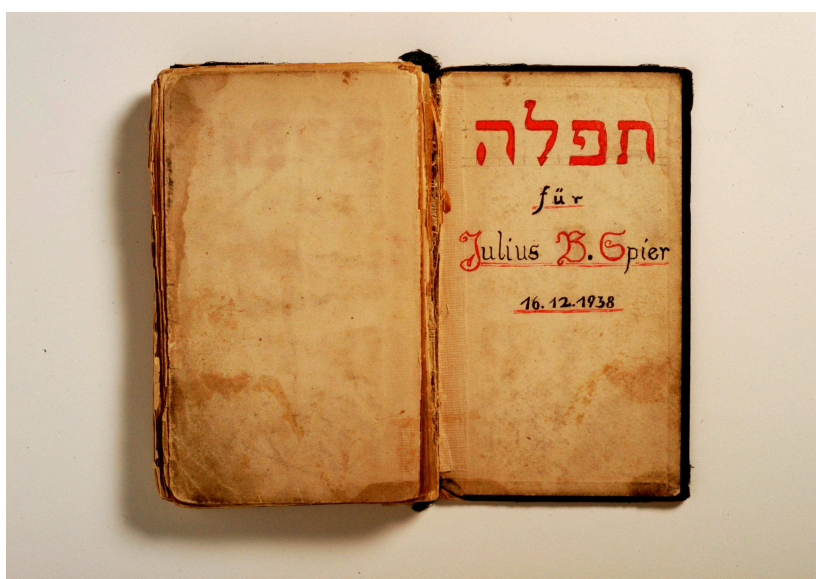 תפלה
für
Julius B. Spier
16.12.1938